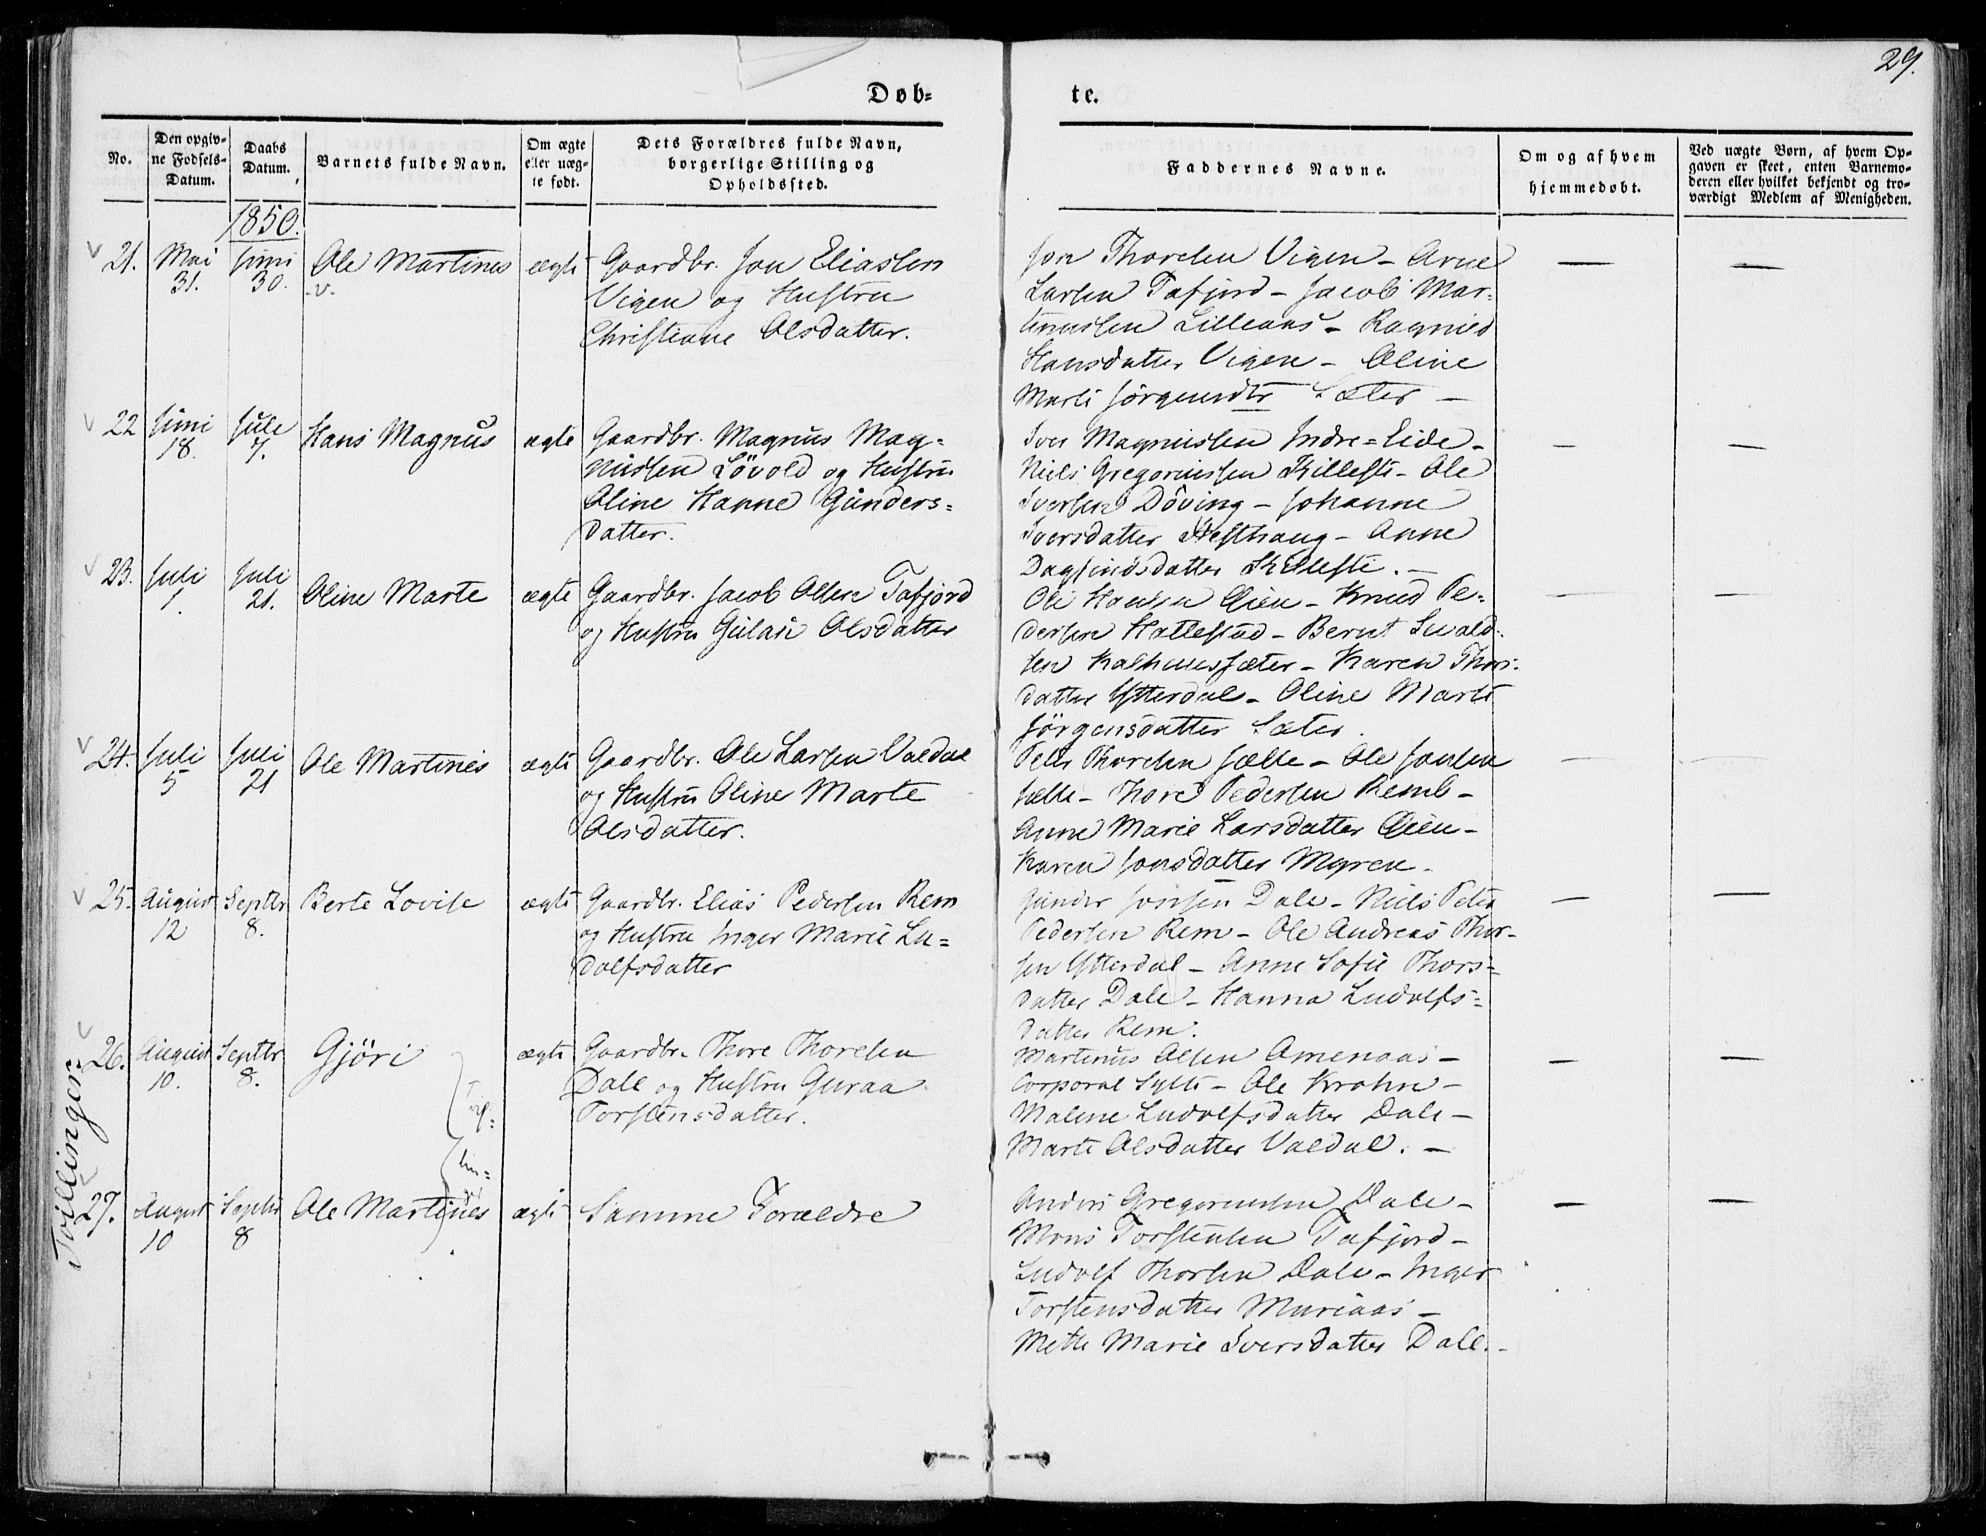 29.
Døb-
te.
No.
Den opgiv-
ne Fødsels-
Datum.
Daabs
Datum.
Barnets fulde Navn.
Om ægte
eller uæg-
te født.
Dets Forældres fulde Navn,
borgerlige Stilling og
Opholdssted.
Faddernes Navne.
Om og af hvem
hjemmedøbt.
Ved uægte Børn, af hvem Op-
gaven er skeet, enten Barnemo-
deren eller hvilket bekjendt og tro-
værdigt Medlem af Menigheden.
1850.
21.
Mai
31.
Juni
30.
Ole Martinus
ægte
Gaardbr. Jon Eliassen
Vigen og Hustru
Christiane Olsdatter.
Jon Thoresen Vigen – Arne
Larsen Tafjord – Jacob Mar-
tinussen Lilleaas –
Hansdatter Vigen – Oline
Marte Jørgensdtr Sæter –
—
—
22
Juni
18.
Jule
7.
Hans Magnus
ægte
Gaardbr. Magnus Mag-
nussen Løvold og Hustru
Oline Hanne Gunders-
datter.
Iver Magnussen Indre=Eide –
Niels Gregoriussen Killesti – Ole
Iversen Døving – Johanne
Iversdatter Hesthaug – Anne
Dagfindsdatter Killesti. –
—
—
23.
Juli
1.
Juli
21.
Oline Marte
ægte
Gaardbr. Jacob Olsen Tafjord
og Hustru Olsdatter
Ole Hansen Øien – Knud Pe-
dersen Hallestad – Bernt
sen Kalhussæter – Karen Thors-
datter Ytterdal – Oline Marte
Jørgensdatter Sæter.
—
—
24.
Juli
5
Juli
21
Ole Martinus
ægte
Gaardbr. Ole Larsen Valdal
og Hustru Oline Marte
Olsdatter.
Peter Thoresen Jælle – Ole Jonsen
Jælle – Thore Pedersen –
Anne Marie Larsdatter Øien –
Karen Jonsdatter Myren –
—
—
25.
August
12
Septbr
8.
Berte Lovise
ægte
Gaardbr. Elias Pedersen Rem
og Hustru Inger Marie Lu-
dolfsdatter
Gunder Jonsen Dale – Niels Peter
Pedersen Rem – Ole Andreas Thor-
sen Ytterdal – Anne Sofie Thors-
datter Dale – Hanna Ludolfs-
datter Rem.
—
—
Tvillinger.
26.
August
10.
Septbr
8.
Gjøri
ægte
Gaardbr. Thore Thoresen
Dale og Hustru Guraa
Torstensdatter.
Martinus Olsen Amenaas –
Corporal Sylte – Ole Krohn –
Maline Ludolfsdatter Dale –
Marte Olsdatter Valdal. –
—
—
27.
August
10
Septbr
8
Ole Martinus
ægte
Samme Forældre
Anders Gregoriussen Dale –
Mons Torstensen Tafjord –
Ludolf Thorsen Dale – Inger
Torstensdatter Muriaas –
Mette Marie Iversdatter Dale. –
—
—